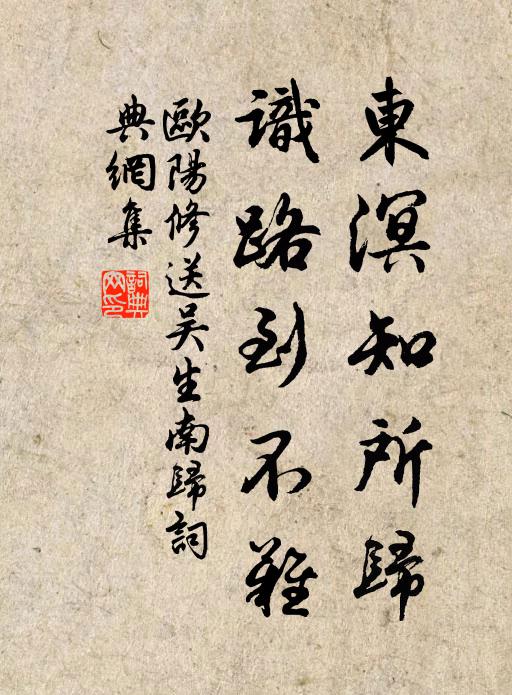 東溟知所歸
識路到不難
歐陽修送吴生南歸詞
典網集
詞典網印